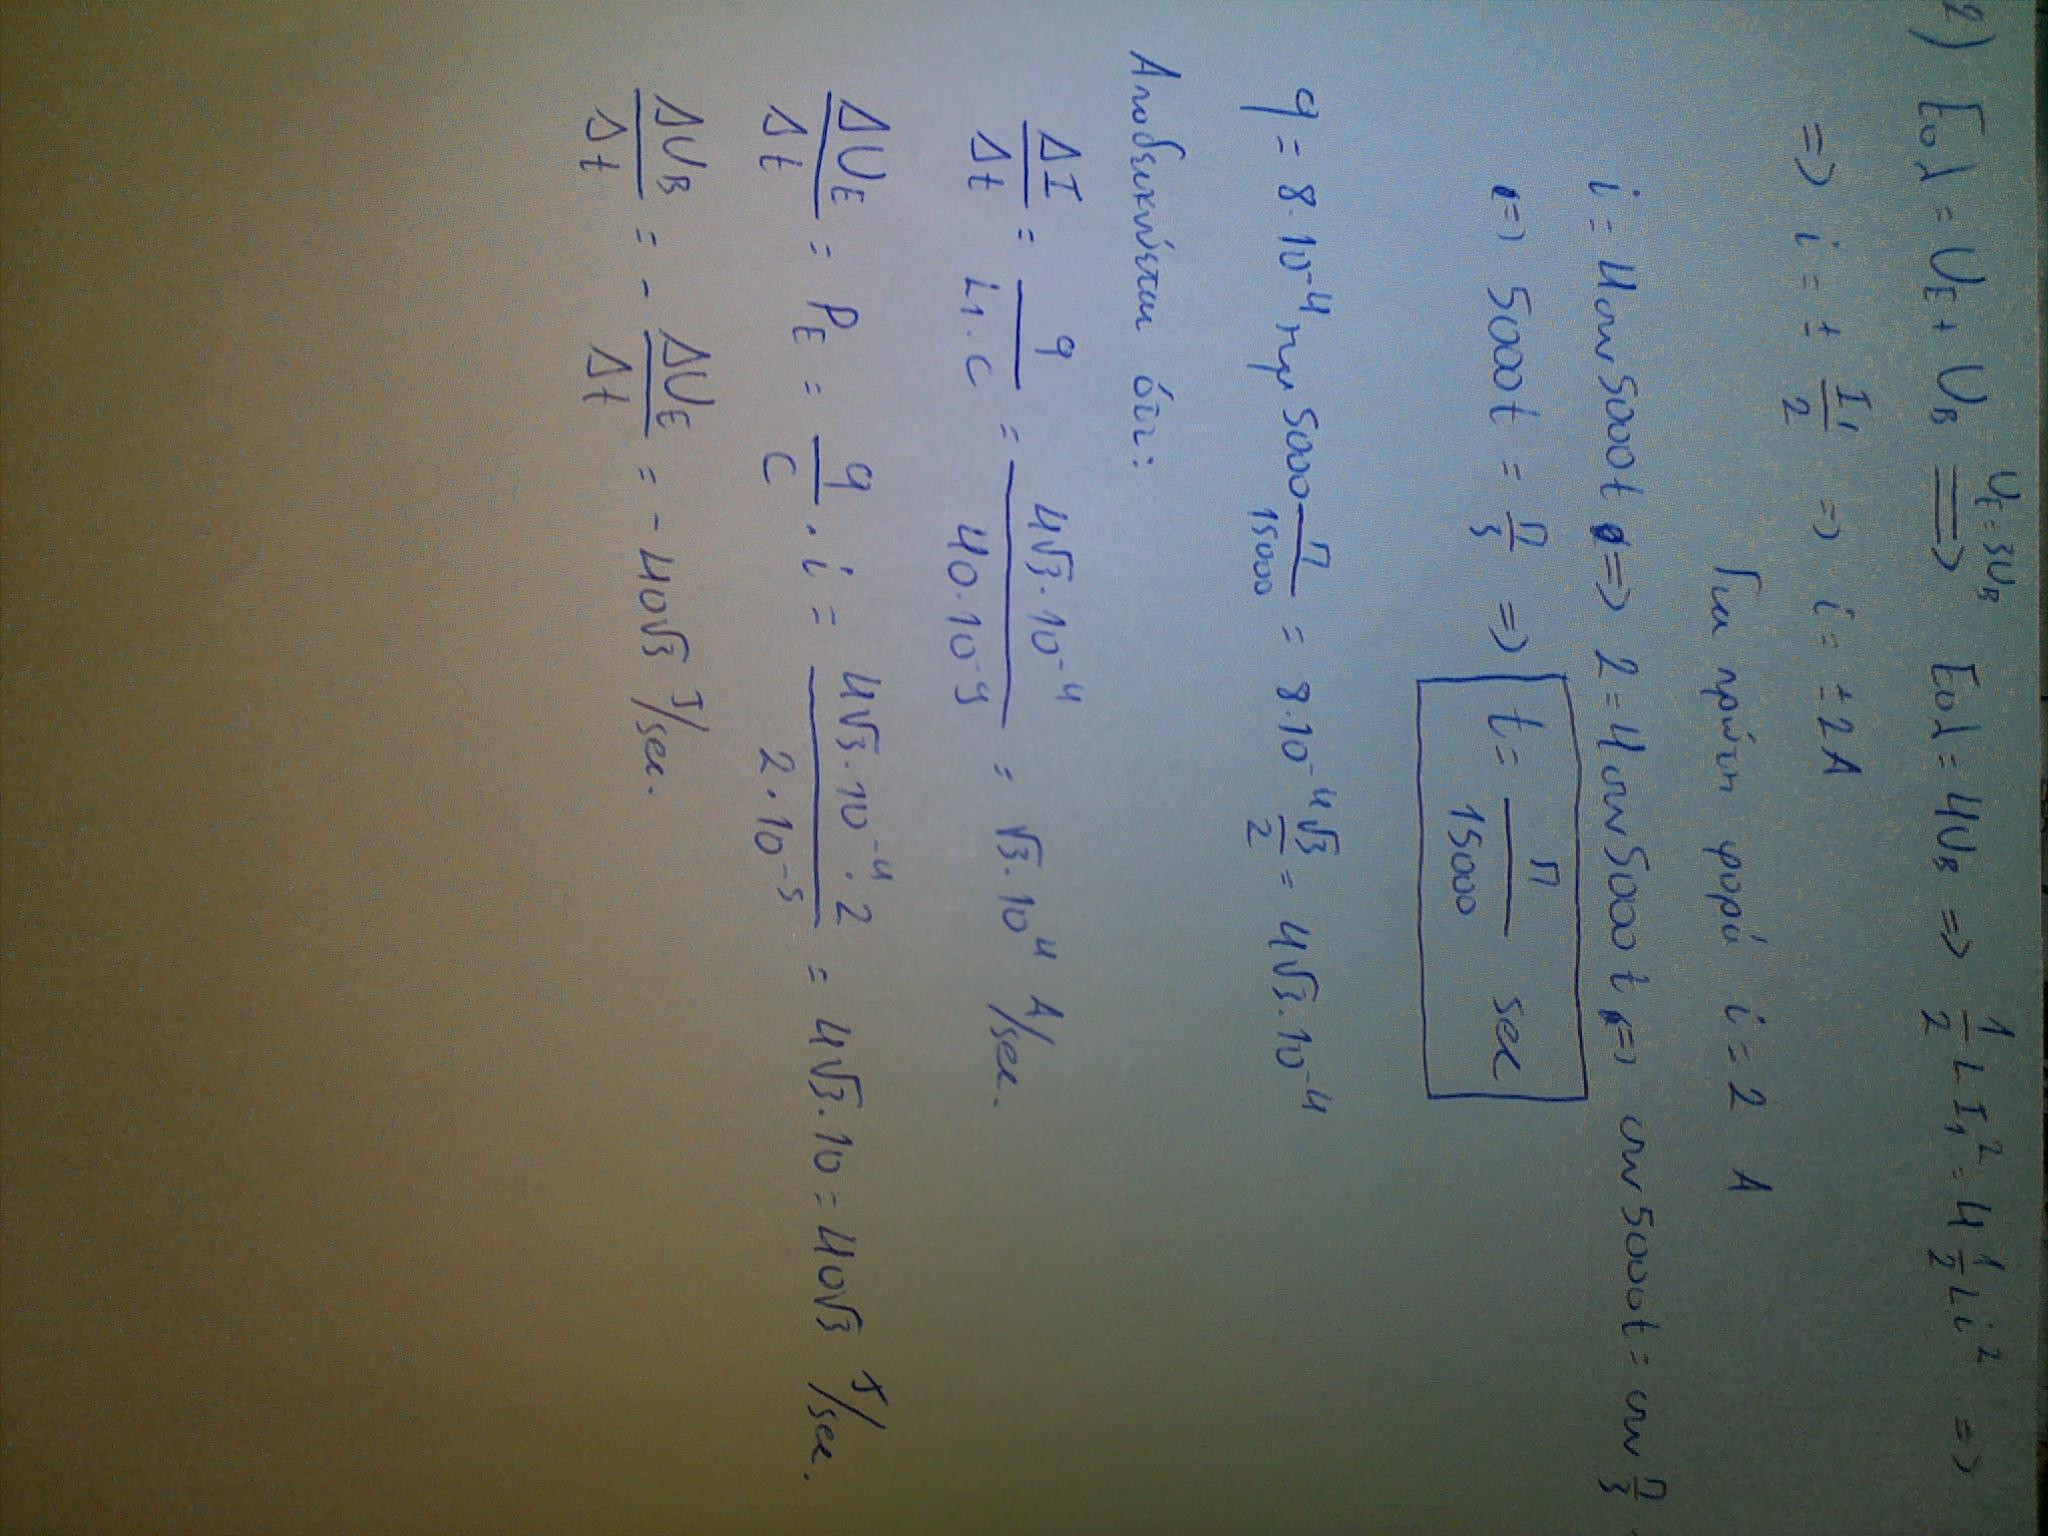 2) Εολ = U_E + U_B ⟹ (U_E = 3U_B) Εολ = 4U_B => 1/2 L I₁² = 4 1/2 L i² =>
=> i = ± I₁/2 => i = ± 2A
Για πρώτη φορά i = 2 A
i = 4συν5000t => 2 = 4συν5000t => συν5000t = συν π/3
=> 5000t = π/3 => t = π/15000 sec
q = 8·10⁻⁴ημ5000 π/15000 = 8·10⁻⁴ √3/2 = 4√3·10⁻⁴
Αποδεικνύεται ότι:
ΔI/Δt = q/(L₁·C) = 4√3·10⁻⁴/(40·10⁻⁹) = √3·10⁴ A/sec.
ΔU_E/Δt = P_E = q/C · i = 4√3·10⁻⁴·2/(2·10⁻⁵) = 4√3·10 = 40√3 J/sec.
ΔU_B/Δt = - ΔU_E/Δt = - 40√3 J/sec.